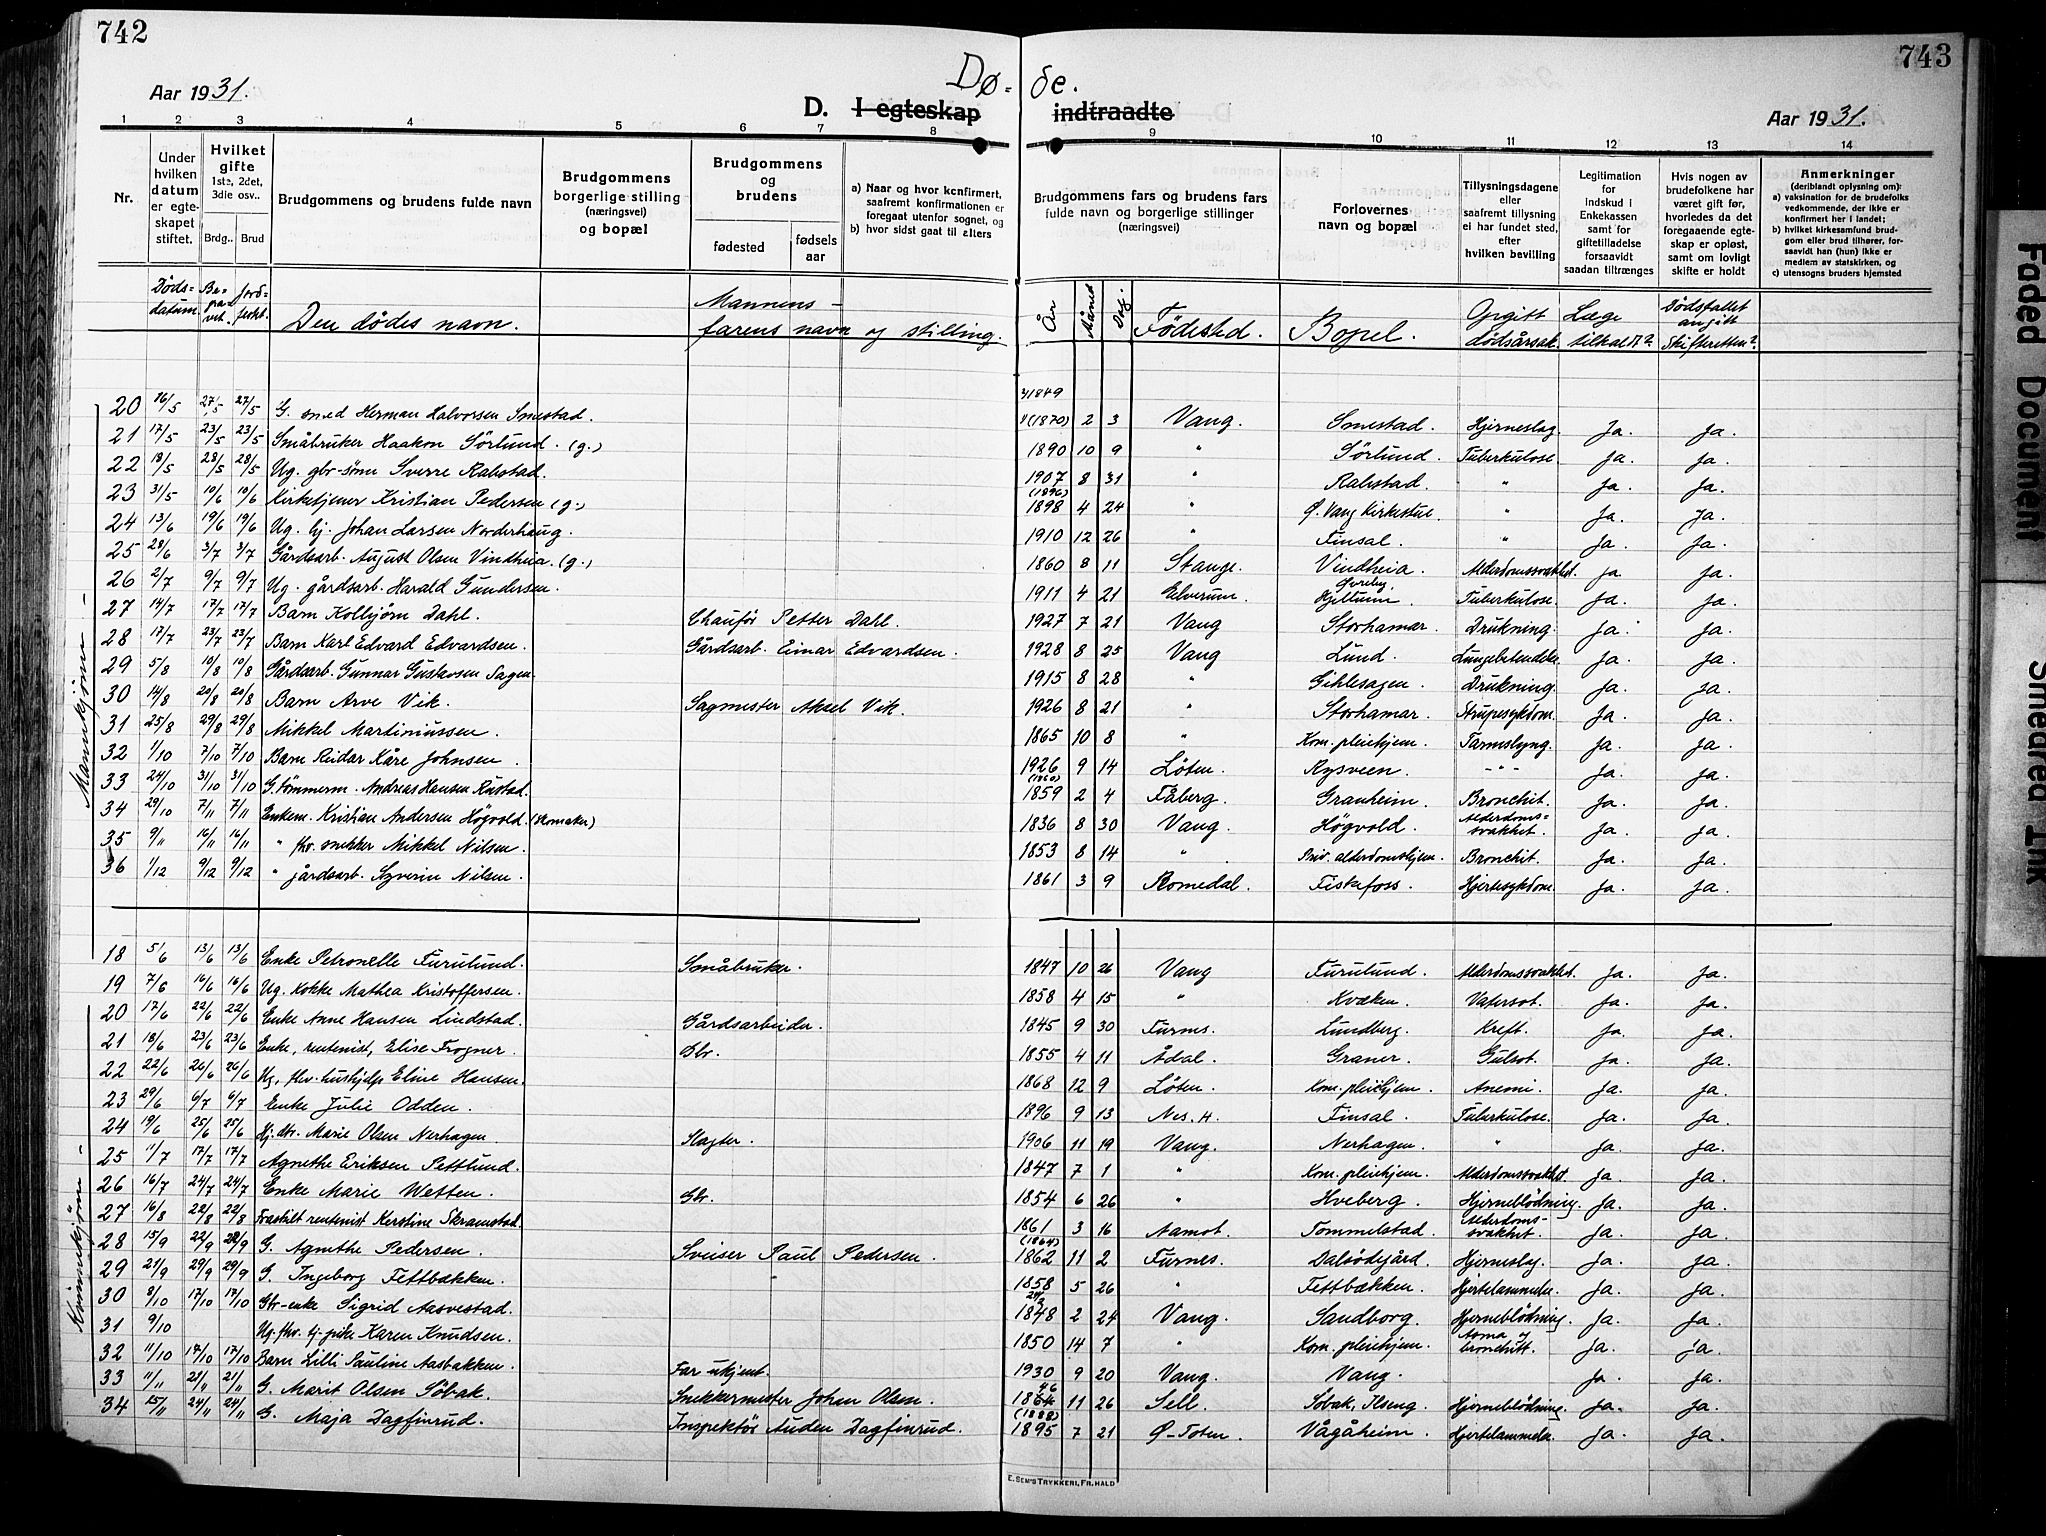 742
743
Aar 1931.
Dø-
de.
D. I egteskap
indtraadte
Aar 1931.
1 2 3 4 5 6 7 8
9 10 11 12 13 14
Nr.
Under hvilken datum er egteskapet stiftet.
Hvilket gifte 1ste, 2det, 3die osv..
Brdg.. Brud
Brudgommens og brudens fulde navn
Brudgommens borgerlige stilling (næringsvei) og bopæl
Brudgommens og brudens
fødested fødsels aar
a) Naar og hvor konfirmert, saafremt konfirmationen er foregaat utenfor sognet, og
b) hvor sidst gaat til alters
Brudgommens fars og brudens fars fulde navn og borgerlige stillinger (næringsvei)
Forlovernes navn og bopæl
Tillysningsdagene eller saafremt tillysning ei har fundet sted, efter hvilken bevilling
Legitimation for Indskud i Enkekassen samt for giftetilladelse forsaavidt saadan tiltrænges
Hvis nogen av brudefolkene har været gift før, hvorledes da det foregaaende egteskap er opløst, samt om lovligt skifte er holdt
Anmerkninger (deriblandt oplysning om):
a) vaksination for de brudefolks vedkommende, der ikke er konfirmert her i landet;
b) hvilket kirkesamfund brudgom eller brud tilhører, forsaavidt han (hun) ikke er medlem av statskirken, og
c) utensogns bruders hjemsted
Døds-datum. Be-gra-vet. Jord-festet. Den dødes navn. Mannens - farens navn og stilling.
År Måned Dag. Fødested. Bopel. Opgitt dødsårsak. Læge tilkalt? Dødsfallet angitt Skifteretten?
Mannkjønn -
20 16/5 27/5 27/5 G. smed Herman Halvorsen Smestad. 1849 (1870) 2 3 Vang. Smestad. Hjerneslag. Ja. Ja.
21 17/5 23/5 23/5 Småbruker Haakon Sörlund. (g.) 1890 10 9 " Sörlund. Tuberkulose. Ja. Ja.
22 18/5 28/5 28/5 Ug. gbr-sönn Sverre Rabstad. 1907 8 31 " Rabstad. " Ja. Ja.
23 31/5 10/6 10/6 Kirketjener Kristian Pedersen (g.) (1896) 1898 4 24 " Ø. Vang Kirkestue. " Ja. Ja.
24 13/6 19/6 19/6 Ug. hj. Johan Larsen Norderhaug. 1910 12 26 Finsal. " Ja. Ja.
25 28/6 3/7 3/7 Gårdsarb. August Olsen Vindheia. (g.) 1860 8 11 Stange. Vindheia. Alderdomssvakhet. Ja Ja.
26 2/7 9/7 9/7 Ug. gårdsarb. Harald Gundersen. 1911 4 21 Elverum. Tuberkulose. Ja. Ja.
27 14/7 17/7 17/7 Barn Kolbjörn Dahl. Chauför Petter Dahl. 1927 7 21 Vang Storhamar. Drukning. Ja. Ja.
28 17/7 23/7 23/7 Barn Karl Edvard Edvardsen. Gårdsarb. Einar Edvardsen. 1928 8 25 Vang Lund. Lungebetendelse. Ja. Ja.
29 5/8 10/8 10/8 Gårdsarb. Gunnar Gustavsen Sagen. 1915 8 28 " Gihlesagen. Drukning. Ja. Ja.
30 14/8 20/8 20/8 Barn Arve Vik. Sagmester Aksel Vik. 1926 8 21 " Storhamar. Strupesykdom. Ja. Ja.
31 25/8 29/8 29/8 Mikkel Martiniussen. 1865 10 8 " Kom. pleiehjem. Tarmslyng. Ja. Ja.
32 1/10 7/10 7/10 Barn Reidar Kåre Johnsen. 1926 9 14 Löten. Rysveen. -"- Ja. Ja.
33 24/10 31/10 31/10 G. tömmerm. Andreas Hansen Rustad. (1860) 1859 2 4 Fåberg. Granheim. Bronchit. Ja. Ja.
34 29/10 7/11 7/11 Enkem. Kristian Andersen Högvold. (skomaker) 1836 8 30 Vang. Högvold. Alderdoms-svakhet. Ja. Ja.
35 9/11 16/11 16/11 " fhv. snekker Mikkel Nilsen. 1853 8 14 " Priv. alderdomshjem. Bronchit. Ja. Ja.
36 1/12 9/12 9/12 " gårdsarb. Syverin Nilsen. 1861 3 9 Romedal. Fiskefoss. Hjertesykdom. Ja. Ja.
Kvinnekjønn -
18 5/6 13/6 13/6 Enke Petronelle Furulund. Småbruker. 1847 10 26 Vang Furulund. Alderdomssvakhet. Ja. Ja.
19 7/6 16/6 16/6 Ug. kokke Mathea Kristoffersen. 1858 4 15 " Kvæken. Vatersot. Ja. Ja.
20 17/6 22/6 22/6 Enke Anne Hansen Lindstad. Gårdsarbeider. 1845 9 30 Furnes. Lundberg. Kreft. Ja. Ja.
21 18/6 23/6 23/6 Enke, rentenist, Elise Frogner. Gbr. 1855 4 11 Ådal. Graner. Gulsot. Ja. Ja.
22 22/6 26/6 26/6 Ug. fhv. hushjelp Eline Hansen. 1868 12 9 Löten. Kom. pleiehjem. Anemi. Ja. Ja.
23 29/6 6/7 6/7 Enke Julie Odden. 1896 9 13 Nes. H. Finsal. Tuberkulose. Ja. Ja.
24 19/6 25/6 25/6 Hj. dtr. Marie Olsen Nerhagen. Slagter. 1906 11 19 Vang. Nerhagen. " Ja. Ja.
25 11/7 17/7 17/7 Agnethe Eriksen Pettlund. 1847 7 1 " Kom. pleiehjem. Alderdomssvakhet. Ja. Ja.
26 16/7 24/7 24/7 Enke Marie Wetten. Gbr. 1854 6 26 " Hveberg. Hjerneblödning. Ja. Ja.
27 16/8 22/8 22/8 Fraskilt rentenist Kerstine Skramstad. 1861 3 16 Aamot. Tommelstad. Alderdoms-svakhet. Ja. Ja.
28 15/9 22/9 22/9 G. Agnethe Pedersen. Sveiser Paul Pedersen. (1864) 1862 11 2 Furnes. Dalsödegård. Hjerneslag. Ja. Ja.
29 21/9 29/9 29/9 G. Ingeborg Fettbækken. " 1858 5 26 " Fettbækken. Hjertelammelse. Ja. Ja.
30 8/10 17/10 17/10 Gbr-enke Sigrid Aasvestad. 1848 2 24 Vang. Sandborg. Hjerneblödning. Ja. Ja.
31 9/10 Ug. fhv. tj-pike Karen Knudsen. 1850 14 7 " Kom. pleiehjem. Asma og bronchitt. Ja. Ja.
32 11/10 17/10 17/10 Barn Lilli Pauline Aasbakken. Far ukjent. 1930 9 20 Vang. Vang. Ja. Ja.
33 11/11 21/11 21/11 G. Marit Olsen Söbak. Snekkermester Johan Olsen. 46 1864 11 26 Sell. Söbak, Ilseng. Hjerneblödning. Ja. Ja.
34 15/11 24/11 24/11 G. Maja Dagfinrud. Inspektör Auden Dagfinrud. (1888) 1895 7 21 Ø-Toten. Vågåheim. Hjertelammelse. Ja. Ja.
E. SEM'S TRYKKERI, FR.HALD
Faded Document
Smeared Ink